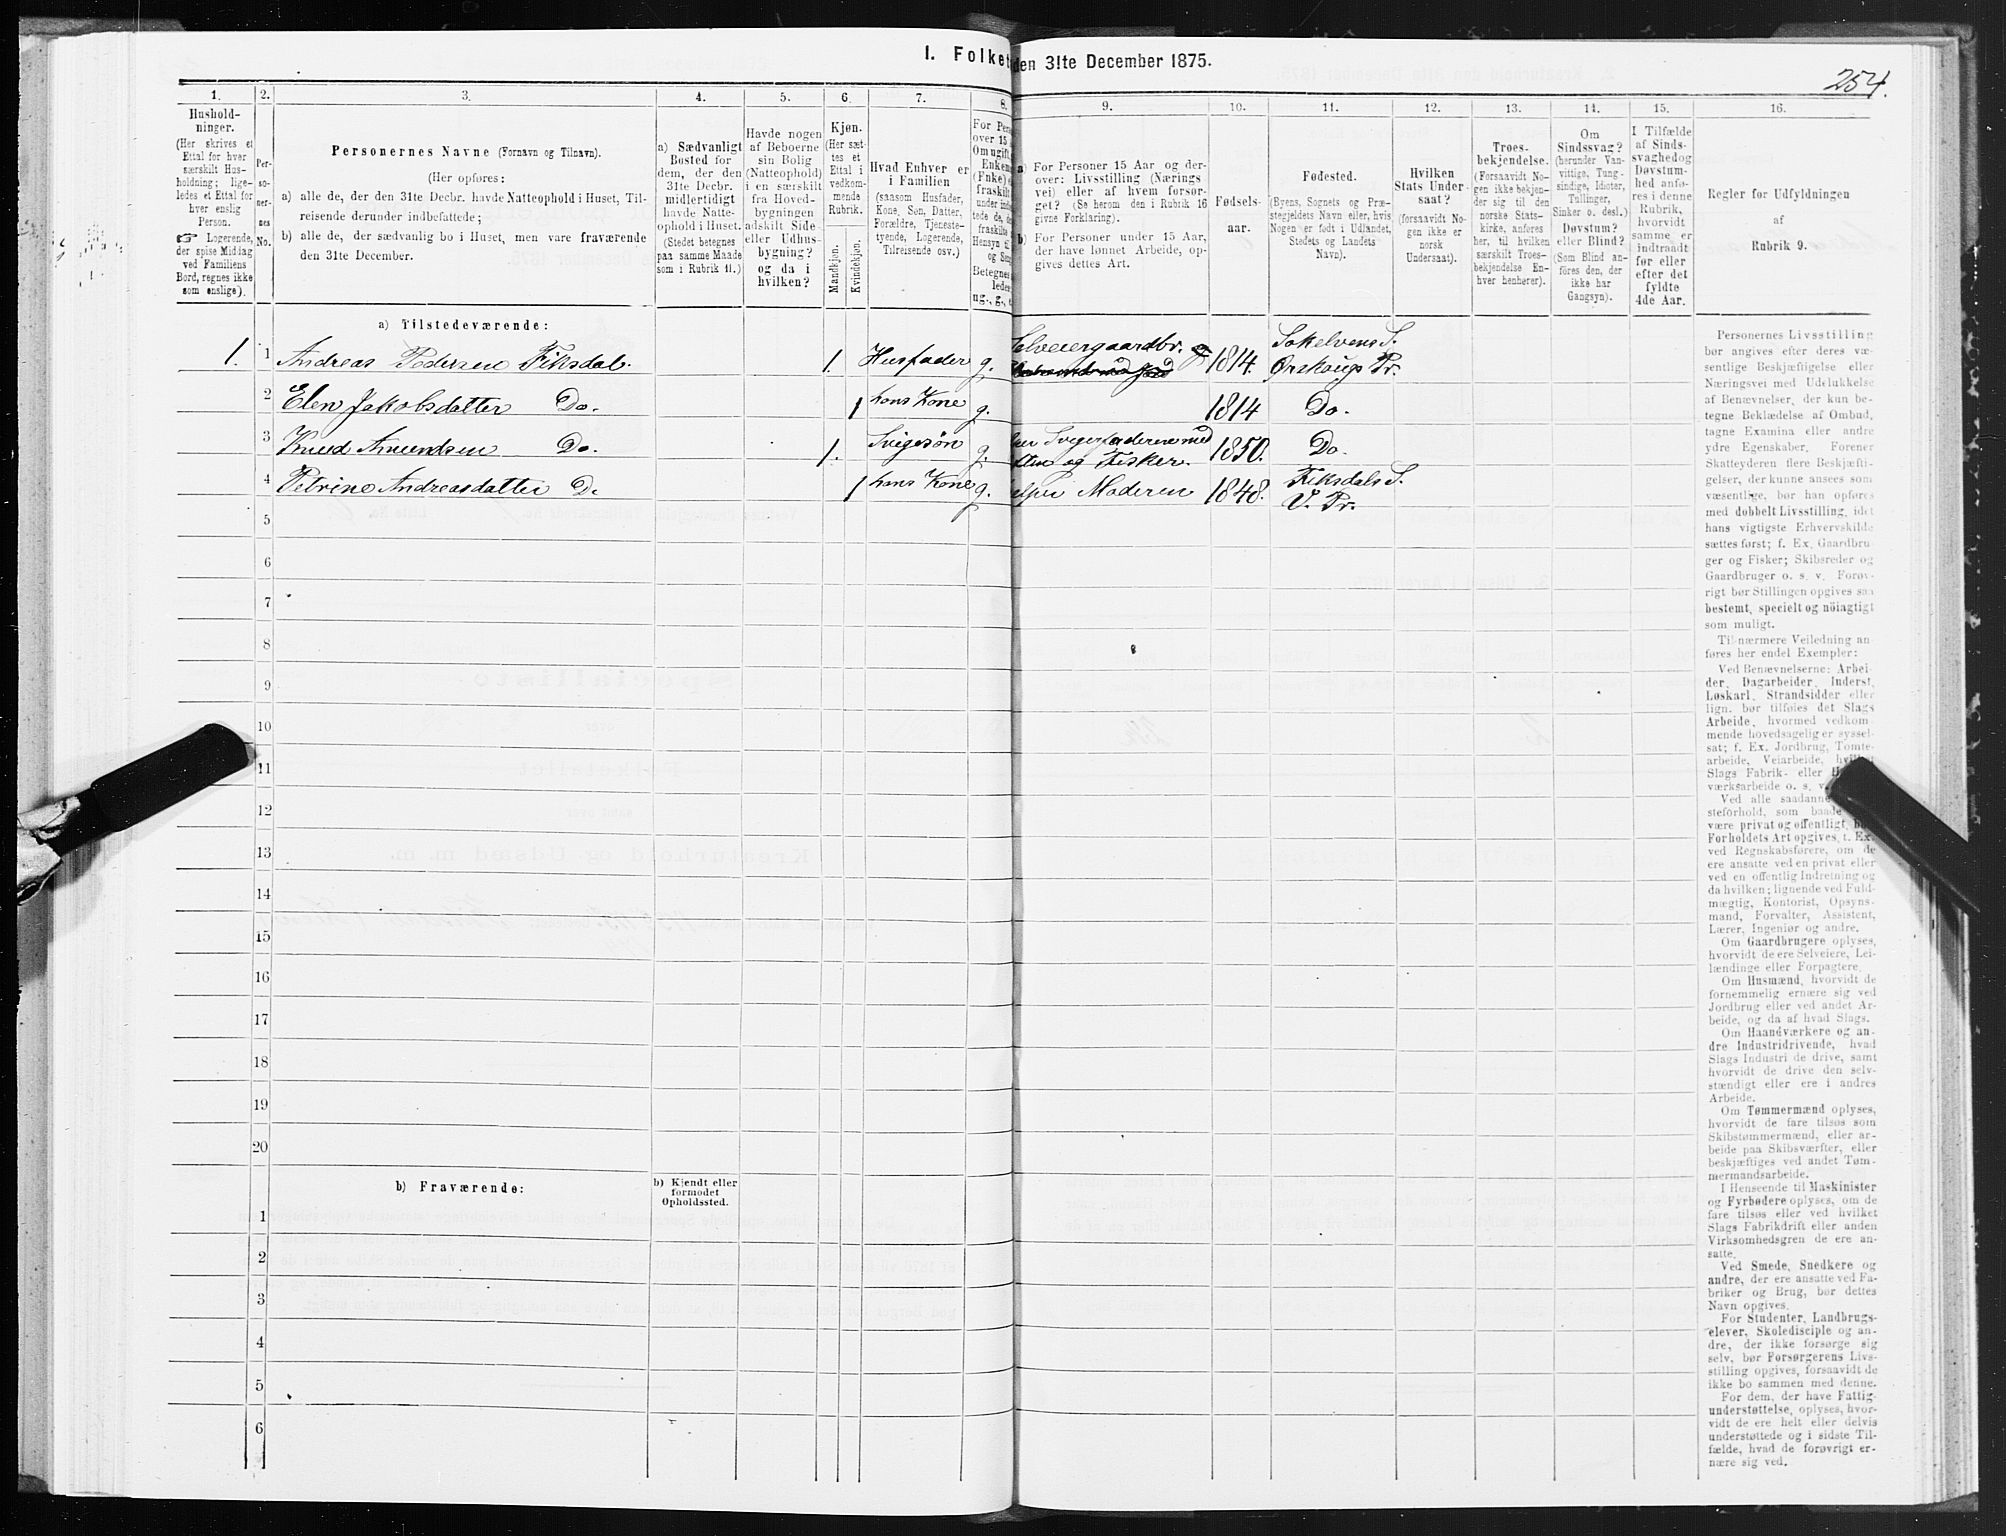 I. Folket
den 31te December 1875.
254.
1.
2.
3.
4.
5.
6.
7.
8.
9.
10.
11.
12.
13.
14.
15.
16.
Hushold-
ninger.
(Her skrives et
Ettal for hver
særskilt Hus-
holdning; lige-
ledes et Ettal for
hver enslig
Person.
☞ Logerende,
der spise Middag
ved Familiens
Bord, regnes ikke
som enslige).
Per-
so-
ner-
nes
No.
Personernes Navne (Fornavn og Tilnavn).
(Her opføres:
a) alle de, der den 31te Decbr. havde Natteophold i Huset, Til-
reisende derunder indbefattede;
b) alle de, der sædvanlig bo i Huset, men vare fraværende
den 31te December.
a) Sædvanligt
Bosted for
dem, der den
31te Decbr.
midlertidigt
havde Natte-
ophold i Huset.
(Stedet betegnes
paa samme Maade
som i Rubrik 11.)
Havde nogen
af Beboerne
sin Bolig
(Natteophold)
i en særskilt
fra Hoved-
bygningen
adskilt Side-
eller Udhus-
bygning?
og da i
hvilken?
Kjøn.
(Her sæt-
tes et
Ettal i
vedkom-
mende
Rubrik.
Mandkjøn.
Kvindekjøn.
Hvad Enhver er
i Familien
(saasom Husfader,
Kone, Søn, Datter,
Forældre, Tjeneste-
tyende, Logerende,
Tilreisende osv.)
For Pers
over 15
Om ugift,
Enkem
(Fnke) e
fraskilt
under inde
tede de, de
fraskilte
Hensyn til
og Sen
Betegnes
ledes
ug., g., e
a) For Personer 15 Aar og der-
over: Livsstilling (Nærings
vei) eller af hvem forsør-
get? (Se herom den i Rubrik 16
givne Forklaring).
b) For Personer under 15 Aar,
der have lønnet Arbeide, op-
gives dettes Art.
Fødsels-
aar.
Fødested.
(Byens, Sognets og Præ-
stegjeldets Navn eller, hvis
Nogen er født i Udlandet,
Stedets og Landets
Navn).
Hvilken
Stats Under-
saat?
(forsaavidt No-
gen ikke er
norsk
Undersaat).
Troes-
bekjendelse.
(Forsaavidt No-
gen ikke bekjen-
der sig til den
norske Stats-
kirke, anføres
her, til hvilken
særskilt Troes-
bekjendelse En-
hver henhører).
Om
Sindssvag?
(herunder Van-
vittige, Tung-
sindige, Idioter,
Tullinger,
Sinker o. desl.)
Døvstum?
eller Blind?
(Som Blind an-
føres den, der
ikke har
Gangsyn).
I Tilfælde
af Sinds-
svaghedog
Døvstum-
hed anfø-
res i denne
Rubrik,
hvorvidt
samme er
indtraadt
før eller
efter det
fyldte
4de Aar.
Regler for Udfyldningen
af
Rubrik 9.
a) Tilstedeværende:
1. 1 Andreas Pedersen Fiksdal. 1. Husfader g. Selveiergaardbr. 1814. Søkelvens S. Ørskougs Pr.
2 Elen Jakobsdatter Do. 1 hans Kone g. 1814 Do.
3 Knud Amundsen Do. 1. Svigesøn g. Svigerfaderen med og Fisker. 1850. Do.
4 Petrine Andreasdatter D. 1 hans Kone g. Moderen 1848. Fiksdals S. V. Pr.
5
6
7
8
9
10
11
12
13
14
15
16
17
18
19
20
b) Fraværende:
b) Kjendt eller
formodet
Opholdssted.
1
2
3
4
5
6
Personernes Livsstilling
bør angives efter deres væ-
sentlige Beskjæftigelse eller
Næringsvei med Udelukkelse
af Benævnelser, der kun be-
tegne Beklædelse af Ombud,
tagne Examina eller andre
ydre Egenskaber. Forener
Skatteyderen flere Beskjæfti-
gelser, der kunne ansees som
væsentlige, bør han opføres
med dobbelt Livsstilling, idet
hans vigtigste Erhvervskilde
sættes først; f. Ex. Gaardbru-
ger og Fisker; Skibsreder og
Gaardbruger o. s. v. Forøv-
rigt bør Stillingen opgives saa
bestemt, specielt og nöiagtigt
som muligt.
Til nærmere Veiledning an-
føres her endel Exempler:
Ved Benævnelserne: Arbei-
der, Dagarbeider, Inderst,
Løskarl, Strandsidder eller
lign. bør tilføies det Slags
Arbeide, hvormed vedkom-
mende hovedsagelig er syssel-
sat; f. Ex. Jordbrug, Tomte-
arbeide, Veiarbeide, hvilket
Slags Fabrik- eller
værksarbeide o. s. v.
Ved alle saadanne
steforhold, som baade
være privat og offentligt,
Forholdets Art opgives, t. Ex.
ved Regnskabsførere, om de
ere ansatte ved en privat eller
ved en offentlig Indretning og
da hvilken; lignende ved Fuld-
mægtig, Kontorist, Opsyns-
mand, Forvalter, Assistent,
Lærer, Ingeniør og andre.
Om Gaardbrugere oplyses,
hvorvidt de ere Selveiere, Lei-
lændinge eller Forpagtere.
Om Husmænd, hvorvidt de
fornemmelig ernære sig ved
Jordbrug eller ved andet Ar-
beide, og da af hvad Slags.
Om Haandværkere og an-
dre Industridrivende, hvad
Slags Industri de drive, samt
hvorvidt de drive den selv-
stændigt eller ere i andres
Arbeide.
Om Tømmermænd oplyses,
hvorvidt de fare tilsøs som
Skibstømmermænd, eller ar-
beide paa Skibsværfter, eller
beskjæftiges ved andet Tøm-
mermandsarbeide.
I Henseende til Maskinister
og Fyrbødere oplyses, om de
fare tilsøs eller ved hvilket
Slags Fabrikdrift eller anden
Virksomhedsgren de ere an-
satte.
Ved Smede, Snedkere og
andre, der ere ansatte ved Fa-
briker og Brug, bør dettes
Navn opgives.
For Studenter, Landbrugs-
elever, Skoledisciple og an-
dre, der ikke forsørge sig
selv, bør Forsørgerens Livs-
stilling opgives, forsaavidt de
ikke bo sammen med denne.
For dem, der have Fattig-
understøttelse, oplyses, hvor-
vidt de ere helt eller delvis
understøttede og i sidste Til-
fælde, hvad de forøvrigt er-
nære sig ved.